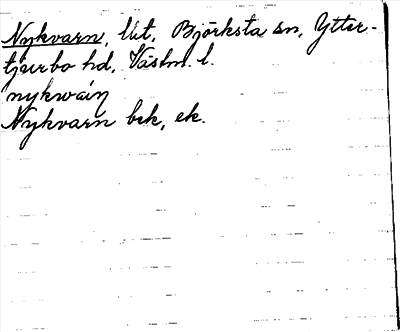 Nykvarn, lht, Björksta sn, Ytter-
tjurbo hd, Västm. l.
nykwáṇ
Nykvarn bek, ek.